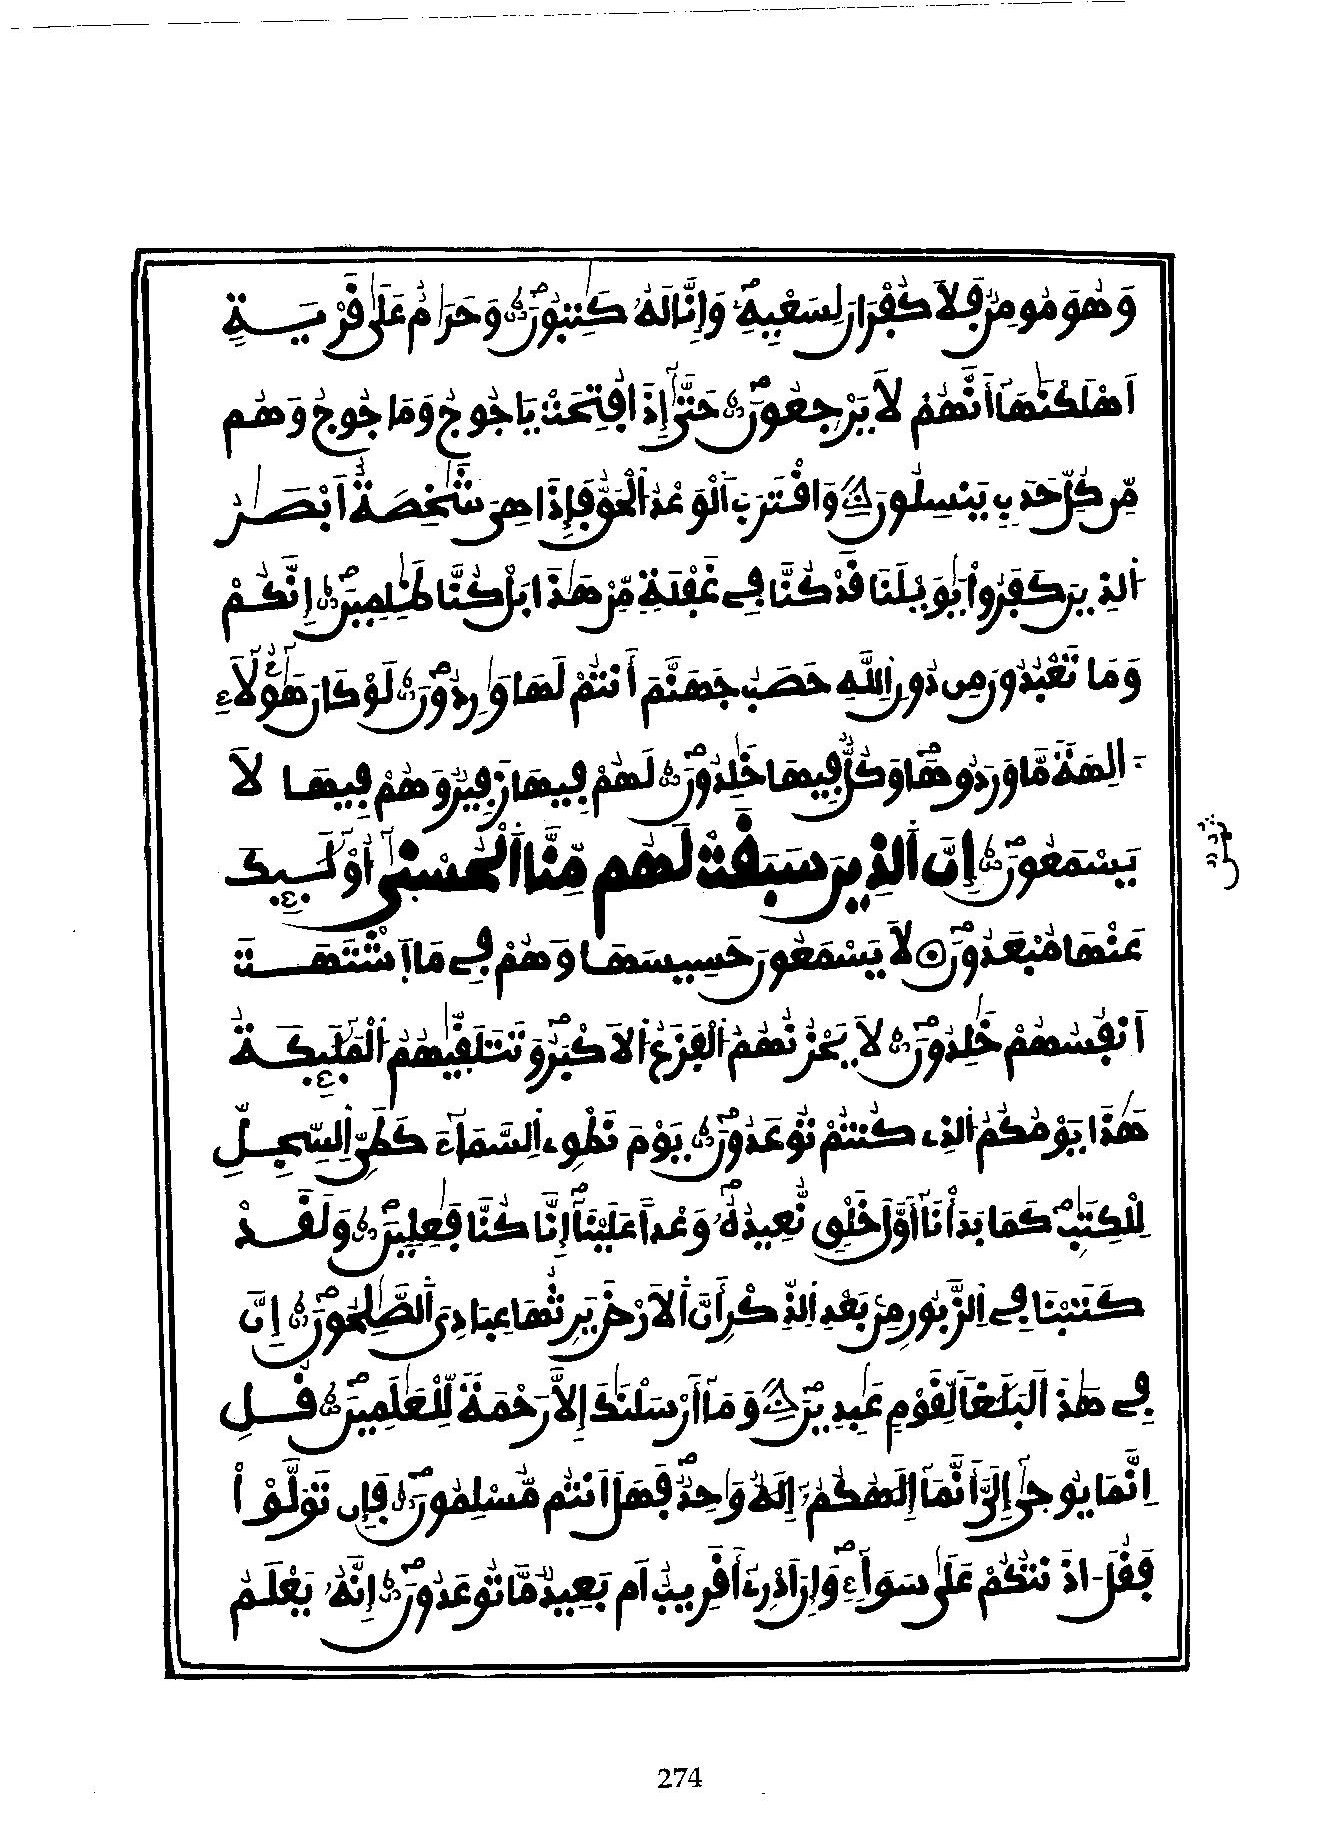 وَهُوَ مُومِنٌ فَلَا كُفْرَانَ لِسَعْيِهِۦ وَإِنَّا لَهُۥ كَٰتِبُونَ وَحَرَٰمٌ عَلَىٰ قَرْيَةٍ
اَهْلَكْنَٰهَآ أَنَّهُمْ لَا يَرْجِعُونَ حَتَّىٰٓ إِذَا فُتِحَتْ يَاجُوجُ وَمَاجُوجُ وَهُم
مِّن كُلِّ حَدَبٍ يَنسِلُونَ وَاقْتَرَبَ اَلْوَعْدُ اُلْحَقُّ فَإِذَا هِيَ شَٰخِصَةٌ اَبْصَٰرُ
اُلذِينَ كَفَرُواْ يَٰوَيْلَنَا قَدْ كُنَّا فِے غَفْلَةٍ مِّنْ هَٰذَا بَلْ كُنَّا ظَٰلِمِينَ إِنَّكُمْ
وَمَا تَعْبُدُونَ مِن دُونِ اِللَّهِ حَصَبُ جَهَنَّمَ أَنتُمْ لَهَا وَٰرِدُونَ لَوْ كَانَ هَٰٓؤُلَآءِ
ءَالِهَةً مَّا وَرَدُوهَا وَكُلٌّ فِيهَا خَٰلِدُونَ لَهُمْ فِيهَا زَفِيرٌ وَهُمْ فِيهَا لَا
يَسْمَعُونَ إِنَّ اَلذِينَ سَبَقَتْ لَهُم مِّنَّا اَلْحُسْنَىٰٓ أُوْلَٰٓئِكَ
عَنْهَا مُبْعَدُونَ لَا يَسْمَعُونَ حَسِيسَهَا وَهُمْ فِے مَا اَشْتَهَتَ
اَنفُسُهُمْ خَٰلِدُونَ لَا يَحْزُنُهُمُ اُلْفَزَعُ اُلَاكْبَرُ وَتَتَلَقَّيٰهُمُ اُلْمَلَٰٓئِكَةُ
هَٰذَا يَوْمُكُمُ اُلذِے كُنتُمْ تُوعَدُونَ يَوْمَ نَطْوِے اِلسَّمَآءَ كَطَيِّ اِلسِّجِلِّ
لِلْكِتَٰبِ كَمَا بَدَأْنَآ أَوَّلَ خَلْقٍ نُّعِيدُهُۥ وَعْداً عَلَيْنَآ إِنَّا كُنَّا فَٰعِلِينَ وَلَقَدْ
كَتَبْنَا فِے اِلزَّبُورِ مِنۢ بَعْدِ اِلذِّكْرِ أَنَّ اَلَارْضَ يَرِثُهَا عِبَادِيَ اَلصَّٰلِحُونَ إِنَّ
فِے هَٰذَا اَلْبَلَٰغاً لِّقَوْمٍ عَٰبِدِينَ وَمَآ أَرْسَلْنَٰكَ إِلَّا رَحْمَةً لِّلْعَٰلَمِينَ قُلِ
اِنَّمَا يُوحَىٰٓ إِلَيَّ أَنَّمَآ إِلَٰهُكُمُۥٓ إِلَٰهٌ وَٰحِدٌ فَهَلَ اَنتُم مُّسْلِمُونَ فَإِن تَوَلَّوْاْ
فَقُلَ اٰذَنتُكُمْ عَلَىٰ سَوَآءٍ وَإِنَ اَدْرِےٓ أَقَرِيبٌ اَم بَعِيدٌ مَّا تُوعَدُونَ إِنَّهُۥ يَعْلَمُ
274